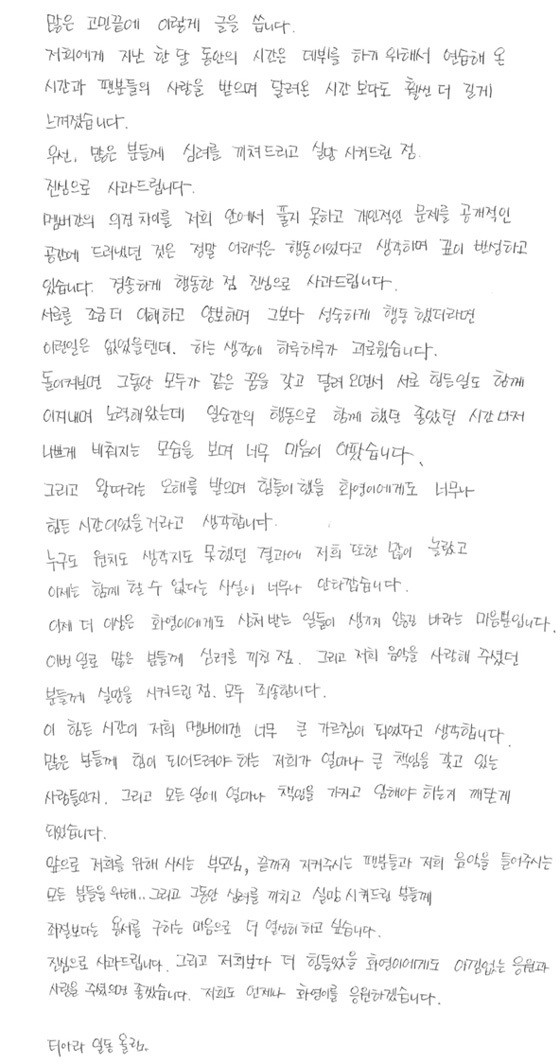 많은 고민끝에 이렇게 글을 씁니다.
저희에게 지난 한 달 동안의 시간은 데뷔를 하기 위해서 연습해 온
시간과 팬분들의 사랑을 받으며 달려온 시간 보다도 훨씬 더 길게
느껴졌습니다.
우선, 많은 분들께 심려를 끼쳐드리고 실망 시켜드린 점.
진심으로 사과드립니다.
멤버간의 의견 차이를 저희 안에서 풀지 못하고 개인적인 문제를 공개적인
공간에 드러냈던 것은 정말 어리석은 행동이었다고 생각하며 깊이 반성하고
있습니다. 경솔하게 행동한 점 진심으로 사과드립니다.
서로를 조금 더 이해하고 양보하며 그보다 성숙하게 행동 했더라면
이런일은 없었을텐데. 하는 생각에 하루하루가 괴로웠습니다.
돌이켜보면 그동안 모두가 같은 꿈을 갖고 달려 오면서 서로 힘든일도 함께
이겨내며 노력해왔는데 일순간의 행동으로 함께 했던 좋았던 시간마저
나쁘게 비춰지는 모습을 보며 너무 마음이 아팠습니다.
그리고 왕따라는 오해를 받으며 힘들어했을 화영이에게도 너무나
힘든 시간이었을거라고 생각합니다.
누구도 원치도 생각지도 못했던 결과에 저희 또한 많이 놀랐고
이제는 함께 할 수 없다는 사실이 너무나 안타깝습니다.
이제 더 이상은 화영이에게도 상처 받는 일들이 생기지 않길 바라는 마음뿐입니다.
이번 일로 많은 분들께 심려를 끼친 점. 그리고 저희 음악을 사랑해 주셨던
분들께 실망을 시켜드린 점. 모두 죄송합니다.
이 힘든 시간이 저희 멤버에겐 너무 큰 가르침이 되었다고 생각합니다.
많은 분들께 힘이 되어드려야 하는 저희가 얼마나 큰 책임을 갖고 있는
사람들인지. 그리고 모든일에 얼마나 책임을 가지고 임해야 하는지 깨닫게
되었습니다.
앞으로 저희를 위해 사시는 부모님, 끝까지 지켜주시는 팬분들과 저희 음악을 들어주시는
모든 분들을 위해.. 그리고 그동안 심려를 끼치고 실망 시켜드린 분들께
좌절보다는 용서를 구하는 마음으로 더 열심히 하고 싶습니다.
진심으로 사과드립니다. 그리고 저희보다 더 힘들었을 화영이에게도 아낌없는 응원과
사랑을 주셨으면 좋겠습니다. 저희도 언제나 화영이를 응원하겠습니다.
티아라 일동 올림.